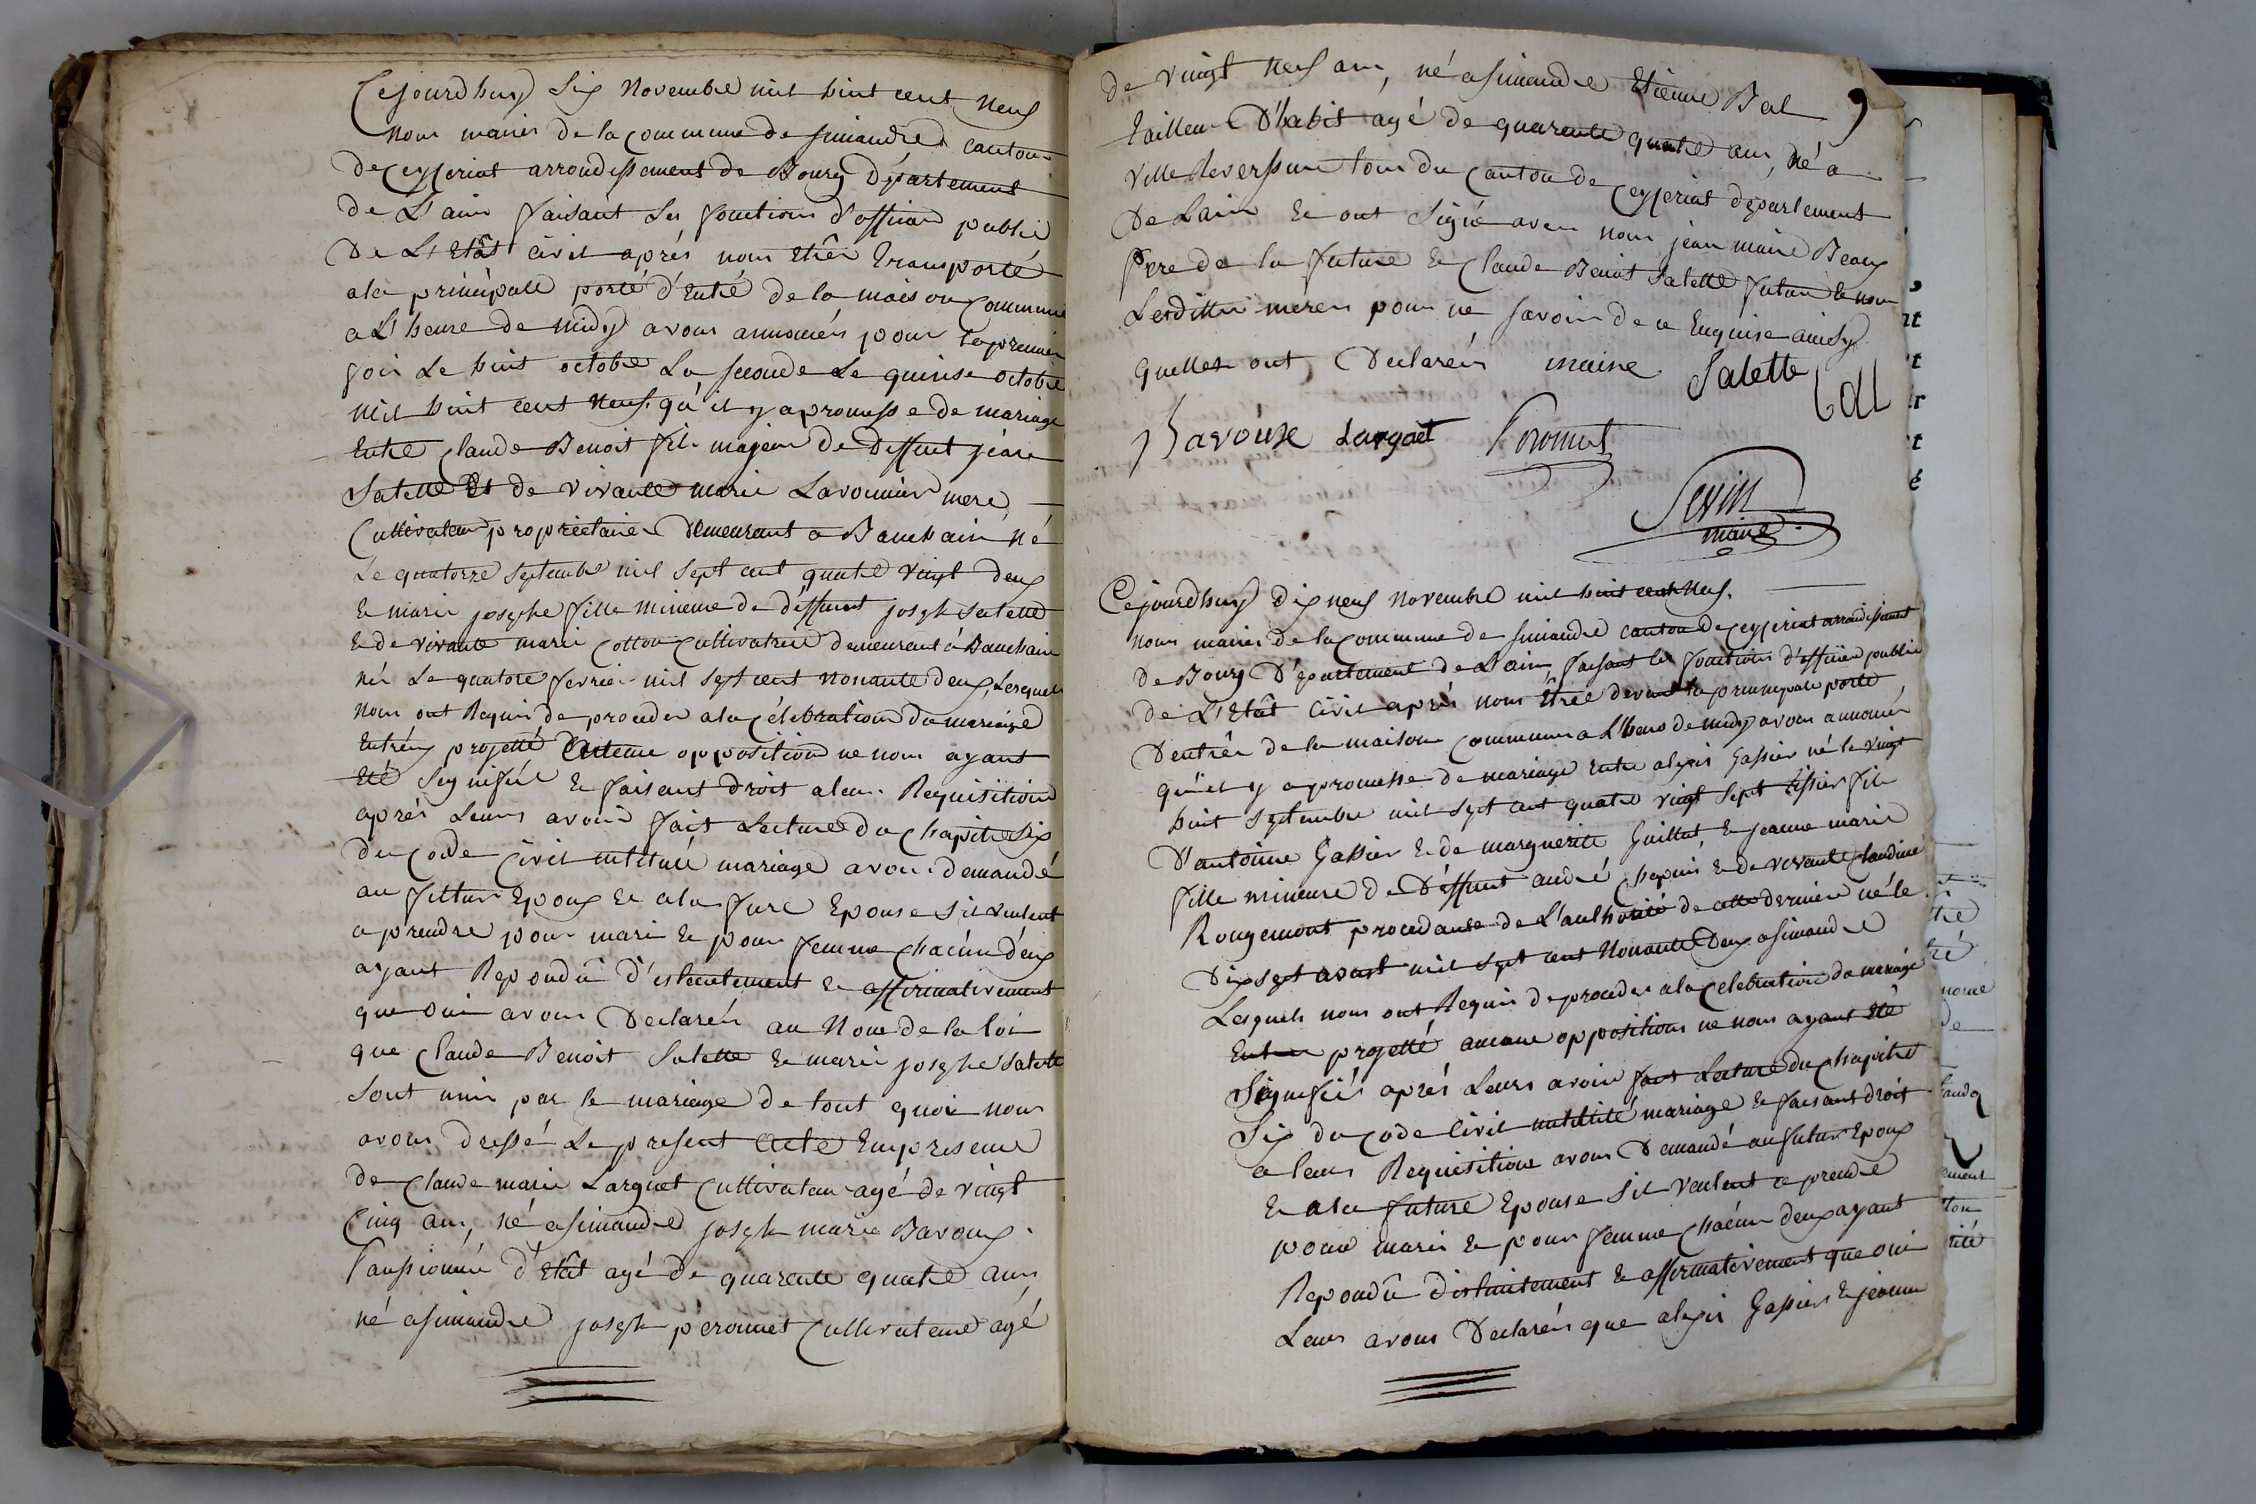 Cejourdhuy Six Novembre mil huit cent Neuf
Nous maire de la Commune de Simandre canton
De Ceyzeriat arrondissement de Bourg Département
De L'ain faisant Les fonctions d'officier public
De L'Etât Civil aprés nous Etrér transporté
ala principalle porte d'Entré de la maison Commune
a L'heure de midy avons annoncés pour la premier
fois Le huit octobre La seconde Le quinse octobre
Mil huit cent Neuf. qu'il y a promesse de mariage
Entre Claude Benoit fils majeur de Deffunt jéan
Salette Et de vivante marie Lavounier mere
Cultivateur propriétaire Demeurant a Banchain Né
Le quatorze septembre mil sept cent quatre vingt deux
Et marie josephe fille mineure de déffunt joseph Salette
Et de vivante marie Cotton Cultivatrice demeurent á Banchain
née Le quatorze fevrier mil sept cent nonante deux, Lesquels
Nous ont Requis de proceder ala Célébration du mariage
Entréux projetté aucune opposition ne nous ayant
Eté Signifiée Et faisant droit aleur Requisition
aprés Leurs avoir fait Lecture du Chapitre Six
du Code Civil intitulé mariage avons demandé
au futtur Epoux Et ala future Epouse s'il veulent
a prendre pour mari Et pour femme Chacun d'eux
ayant Repondû distinctement Et affirmativement
que Oui avons Declarés au Nom de la loi
que Claude Benoit Salette Et marie josephe Salette
Sont unis par le mariage de tout quoi nous
avons dressé Le présent acte En presence
de Claude marie Larguet Cultivateur agé de vingt
Cinq ans, né a Simandre joseph marie Bavoux
Panssionné d'Etât agé de quarente quatre ans
né a Simandre joseph peronnet Cultivateur agé
de vingt Neuf ans, né a Simandre Etienne Bal
tailleur D'habit agé de quarente quatre ans, Né a
Ville Reversure tous du Canton de Ceyzeriat département
De Lain Et ont Signé avec nous jean marie Beaux
Pere de la future Et Claude Benoit Salette futur Et non
Lesdittes meres pour ne savoir de ce Enquise ainsy
quelles ont Declarés maire Salette
Bal
Bavoux Larguet Peronnet
Sevin
maire
Cejourdhuy dix neuf novembre mil huit cent Neuf.
Nous maire de la Commune de Simandre canton de Ceyzeriat arrondissement
de Bourg Département de L'ain faisant Les fonctions d'officier public
de L'Etât Civil aprés nous Étrée devant la principale porte
D'entrée de la maison Commune a L'heure de midy avons annoncés
qu'il y a promesse de mariage Entre alexis Gassier né le vingt
huit septembre mil sept cent quatre vingt sept tissier fils
D'antoine Gassier Et de marguerite Guillot, Et jeanne marie
fille mineure de Déffunt andré Chapuis Et de vivante Claudine
Rougemont procédante de L'authorité de cette derniere né le
Dix sept avril mil sept cent Nonante Deux a Simandre
Lesquels nous ont Requis de proceder ala Celebration du mariage
Entreux projetté aucune opposition ne nous ayant Eté
Signifiés aprés Leurs avoir fait Lecture du Chapitre
Six du Code Civil intitulé mariage Et faisant droit
a leur Requisition avons Demandé au futur Epoux
Et ala future Epouse s'il veulent a prendre
pour mari Et pour femme Chacun deux ayant
Repondû distinctement Et affirmativement que oui
Leurs avons Declarés que alexis Gassier Et jeanne